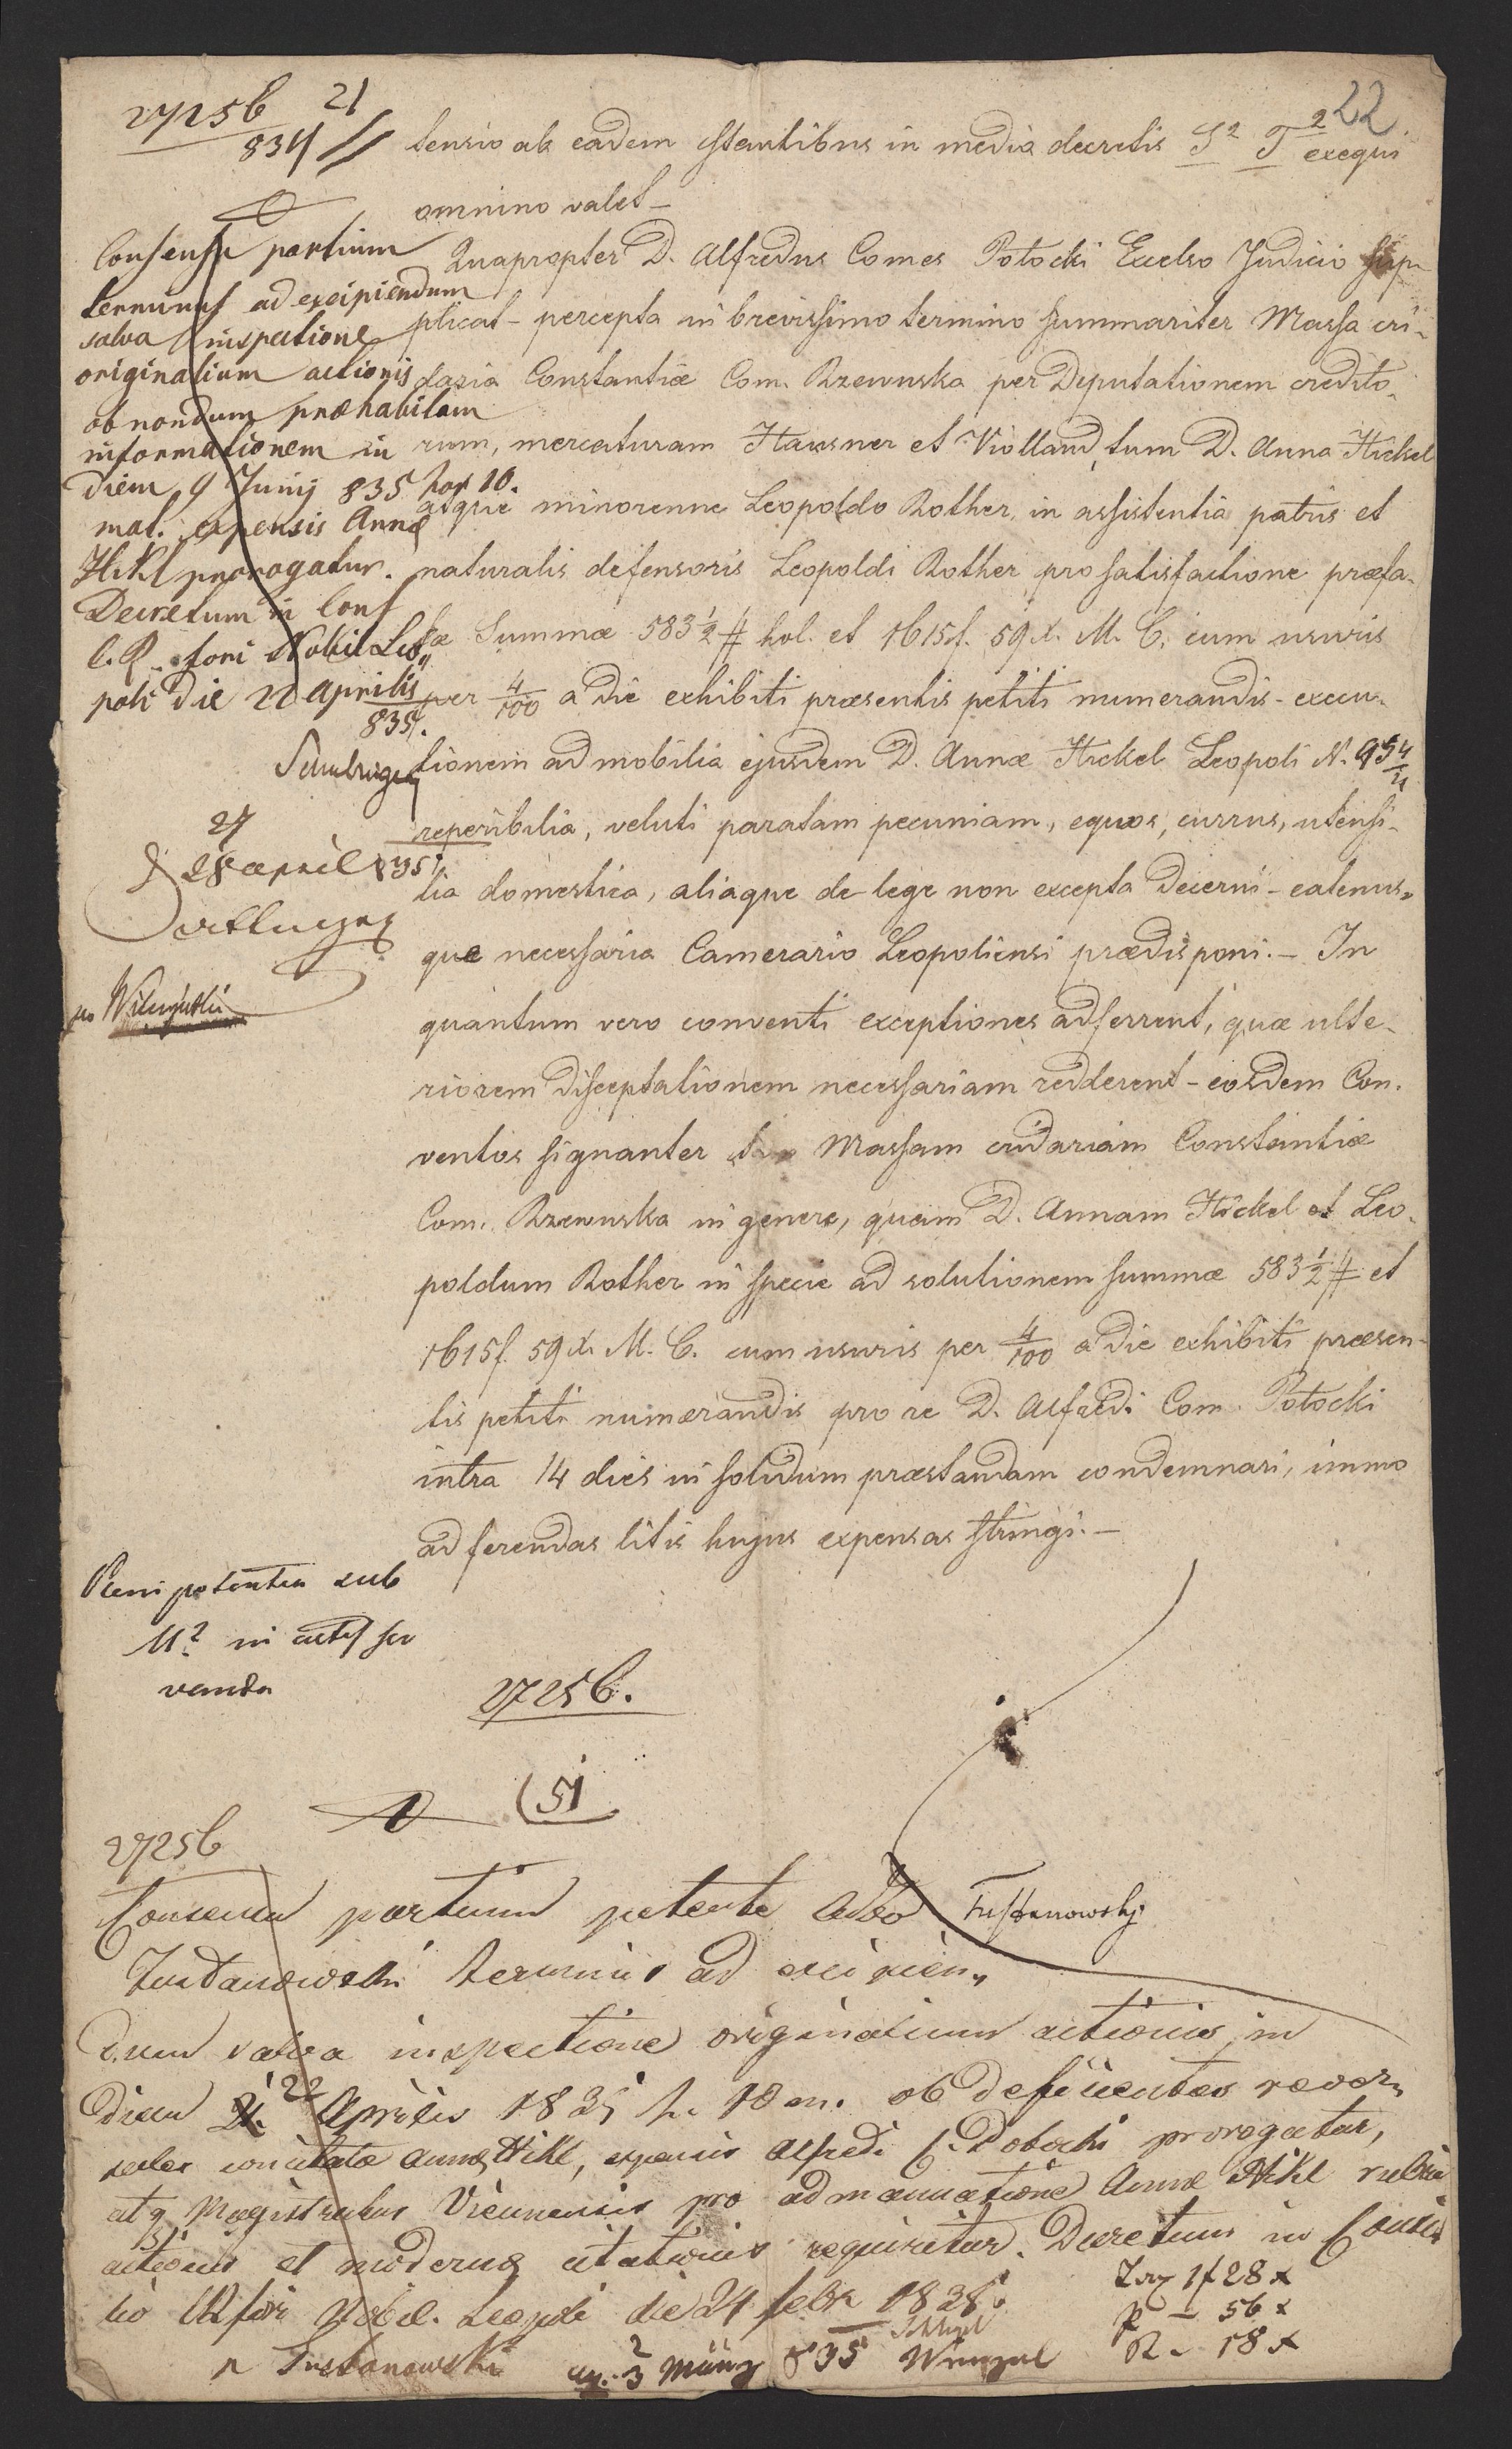 27256 21
834 //
22
tensio ab eadem stantibus in media decretis S² T² exequi
omnino valet –
Quapropter D. Alfredus Comes Potocki Excelso Judicio sup
plicat – percepta in brevissimo termino summariter Massa cri-
daria Constantiæ Com. Rzewuska per Deputationem credito-
rum, mercaturam Hausner et Violland, tum D. Anna Hickel
atque minorenne Leopoldo Rother in assistentia patris et
naturalis defensoris Leopoldi Rother pro satisfactione præfa-
tæ Summæ 583 ½ # hol. et 1615 f. 59 x. M. C. cum usuris
per 4/100 a die exhibiti præsentis petiti numerandis – execu-
tionem ad mobilia ejusdem D. Annæ Hickel Leopoli N. 954/4
reperibilia, veluti paratam pecuniam, equos, currus, utensi-
lia domestica, aliaque de lege non excepta decerni – eatenus-
que necessaria Camerario Leopoliensi prædisponi. – In
quantum vero conventi exceptiones adferrent, quæ ulte-
riorem disceptationem necessariam redderent – eosdem Con-
ventos signanter Massam cridariam Constantiæ
Com. Rzewuska in genere, quam D. Annam Hickel et Leo-
poldum Rother in specie ad solutionem summæ 583 ½ # et
1615 f. 59 x. M. C. cum usuris per 4/100 a die exhibiti præsen-
tis petiti numerandis pro re D. Alfredi Com. Potocki
intra 14 dies in solidum præstandam condemnari, immo
ad ferendas litis hujus expensas stringi. –
Consensu partium
terminus ad excipiendum
salva inspectione
originalium actionis
ob nondum præhabitam
informationem in
diem 9 Junij 835 hor 10.
mat. expensis Annæ
Hikl prorogatur.
Decretum in Cons
C. R. fori Nobil Leo„
poli die 22 Aprilis
835.
27
28 april 835
Plenipotentia sub
U? in actis ser
vanda
27256.
(51
27256
Consensu partium petente Adto
Tustanowski
Tustanowski terminus ad excipien„
dum salva inspectione originalium actionis, in
diem 22 Aprilis 1835 h. 10 m. ob deficientes rever„
sales concitatæ Annæ Hikl, expensis Alfredi C. Potocki prorogatur,
atq Magistratus Viennensis pro admanuatione Annæ Hikl rubri
actionis et modernæ citationis requiritur. Decretum in Consi
lio CR fori Nobil. Leopoli die 24 febr 1835.
Tustanowski
3 März 835
Tax 1 f 28 x
P – 56 x
R – 18 x